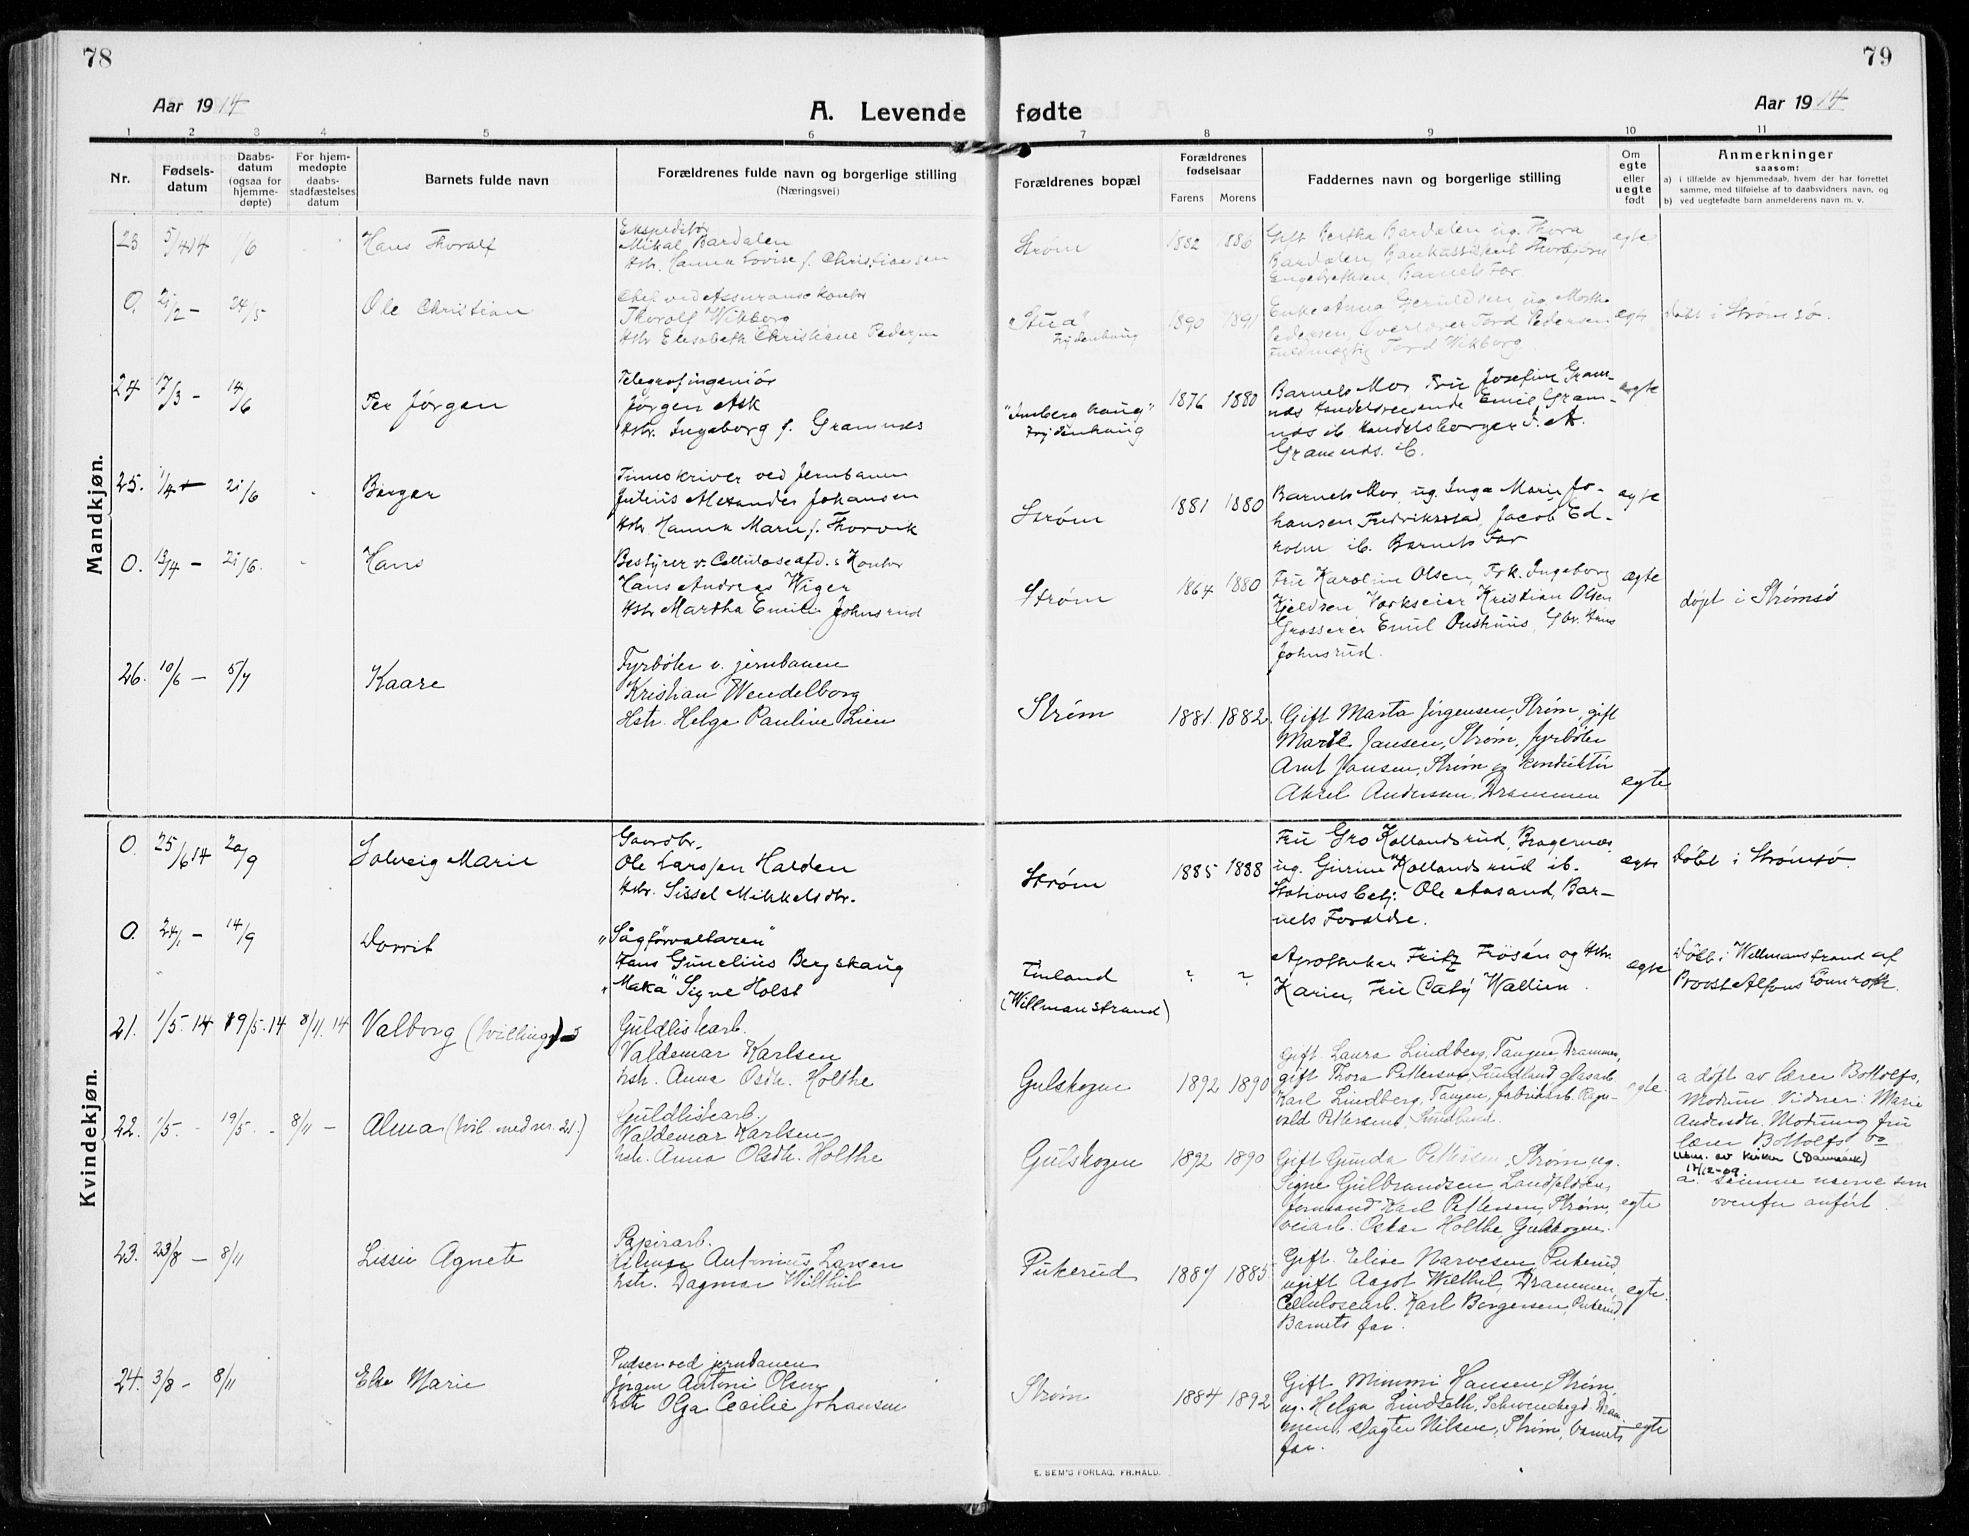 78
79
Aar 1914
A. Levende fødte
Aar 1914
1 2 3 4 5 6 7 8 9 10 11
Nr.
Fødsels-
datum
Daabs-
datum
(ogsaa for
hjemme-
døpte)
For hjem-
medøpte
daabs-
stadfæstelses
datum
Barnets fulde navn
Forældrenes fulde navn og borgerlige stilling
(Næringsvei)
Forældrenes bopæl
Forældrenes
fødselsaar
Farens Morens
Faddernes navn og borgerlige stilling
Om
egte
eller
uegte
født
Anmerkninger
saasom:
a) i tilfælde av hjemmedaab, hvem der har forrettet
samme, med tilføielse af to daabsvidners navn, og
b) ved uegtefødte barn anmelderens navn m. v.
Mandkjøn.
23 5/4 14 Hans Thoralf
Ekspeditør
Mikal Bardalen
Hstr. Hanna Lovise f. Christiansen
Strøm 1882 1886
Gift Bertha Bardalen ug. Thora
Bardalen,
Engebretsen, Barnets Far.
egte
O. 21/2 - 24/5 Ole Christian
Chef ved Assuransekontor
Thorolf Wikborg
Hstr Elisabeth Christiane Pedersen
"Stua"
Frydenhaug
1890 1891
Enke Anna ug. Marthe
Pedersen, Overlærer Tord Pedersen
Fuldmægtig Tord Wikborg
egte
Døbt i Strømsø.
24 17/3 - 14/6 Per Jørgen
Telegrafingeniør
Jørgen Ask
Hstr. Ingeborg f. Gramnæs
Frydenhaug
1876 1880
Barnets Mor, Frú Josefine Gram-
næs Handelsreisende Emil Gram-
næs ib. Handelsborger J. A.
Gramnæs. ib.
egte
25. 1/4 21/6 - Birger
Timeskriver ved Jernbanen
Julius Alexander Johansen
Hstr. Hanna Marie f. Thorvik
Strøm 1881 1880
Barnets Mor, ug. Inga Marie Jo-
hansen, Fredriksstad, Jacob Ed-
holm ib. Barnets Far
egte
O. 13/4 - 21/6. - Hans
Bestyrer v. Celluloseafd.s Kontor
Hans Andreas Wiger
Hstr Martha Emilie Johnsrud
Strøm 1864 1880
Fru Karoline Olsen, Frk. Ingeborg
Kjeldsen Værkseier Kristian Olsen
Grosserer Emil Onshuus, Gbr. Hans
Johnsrud.
egte
døpt i Strømsø
26. 10/6 - 5/7 Kaare
Fyrbøter v. jernbanen
Kristian Wendelborg
Hstr. Helga Pauline Lien
Strøm 1881. 1882.
Gift Marta Jørgensen, Strøm, gift
Marie Jansen, Strøm, fyrbøter
Arnt Jansen, Strøm og konduktør
Aksel Andersen, Drammen
egte
Kvindekjøn.
O. 25/6 14 20/9 Solveig Marie
Gaardbr.
Ole Larssen Halden
Hstr. Sissel Mikkelsdtr.
Strøm 1885 1888
Fru Gro Hollandsrud, Bragernæs
ug. Gurine Hollandsrud ib.
Stationsbetj. Ole Aasand, Bar-
nets Forældre.
egte
Døbt i Strømsø.
O. 24/1 - 14/9 Dorrit
"Sågförvaltaren"
Hans Gunelius Bergskaug
"Maka" Signe Holst
Finland
(Willmanstrand)
? ?
Apotheker Fritz Frösén og Hstr.
Karin, Fru Caty Wallin.
egte
Døbt i Willmanstrand af
Provst Alfons Lönnroth.
21. 1/5. 14 19/5. 14 8/11. 14 Valborg (tvilling)
Guldlistearb.
Valdemar Karlsen
hstr. Anna Osdtr. Holthe
Gulskogen 1892 1890
Gift. Laura Lindberg, Tangen, Drammen,
gift Thora Pettersen, Sundland, glasarb.
Karl Lindberg, Tangen, fabrikarb. Ragn-
vald Pettersen, Sundland.
egte.
a døpt av lærer Bottolfs,
Modum. Vidner: Marie
Andersdtr. Modum og fru
lærer Bottolfs
22. 1/5. - 19/5. - 8/11 - Alma (tvil. med nr. 21.)
Guldlistearb.
Valdemar Karlsen
hstr. Anna Olsdtr. Holthe
Gulskogen 1892 1890
Gift Gunda Pettersen, Strøm, ug.
Signe Gulbrandsen, Landfaldøen,
formand Karl Pettersen, Strøm,
veiarb. Oskar Holthe, Gulskogen.
egte
Utm. av kirken (Danmark)
a. samme navne som
ovenfor anført.
23. 23/8 - 8/11 Lissie Agnete
Papirarb.
Hilmar Antonius Larsen
hstr. Dagmar Wilthil
Pukerud 1887 1885
Gift. Elise Narvesen, Pukerud,
ugift Aagot Wilthil, Drammen,
Cellulosearb. Karl Borgersen, Pukerud,
Barnets far.
egte.
24. 3/8 - 8/11 Else Marie
Pudser ved jernbanen
Jørgen Antoni Olsen
hstr Olga Cecilie Johansen
Strøm 1884 1892
Gift Mimmi Hansen, Strøm,
ug. Helga Lindseth, Schwenckegd. Dram-
men, slagter Nilsen, Strøm, barnets
far.
egte
E. SEM'S FORLAG, FR.HALD.